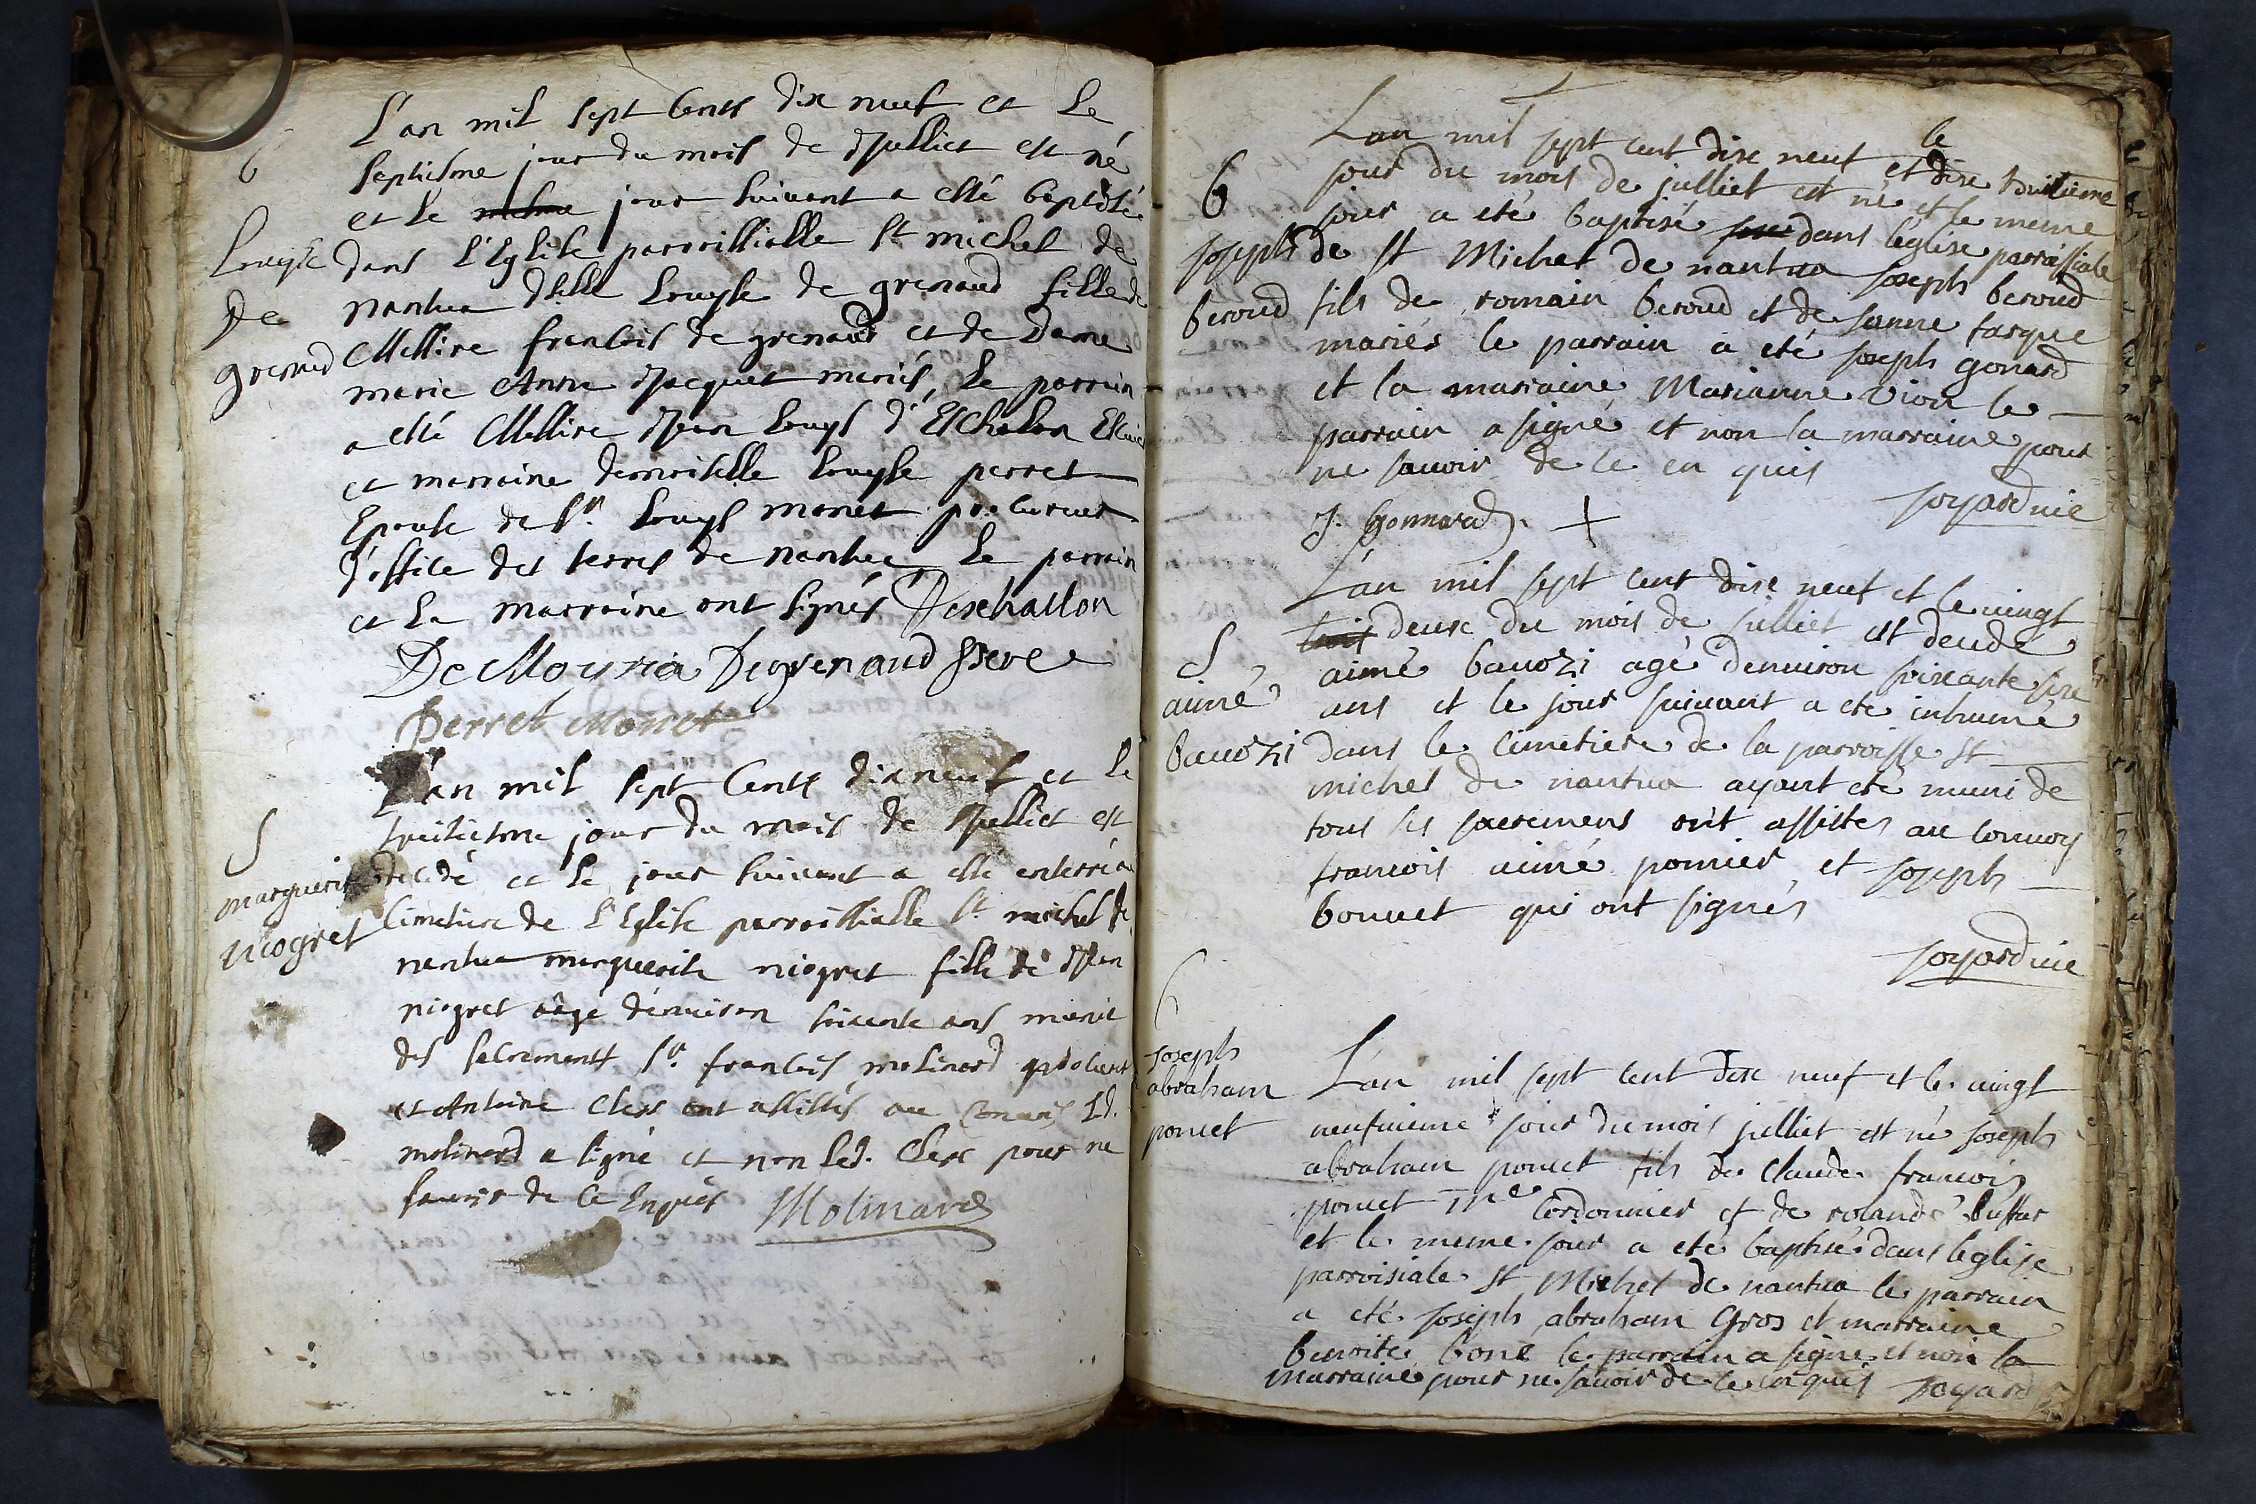 L'an mil sept Cents dix neuf et Le
b
septiesme jour du mois de Juilliet est né
et Le jour suivant a esté baptisée
Louyse
dans L'Eglise parroissialle St michel de
de
nantua dlle Louyse de grenaud fille de
grenaud
Messire francois de grenaud et de Dame
marie Anne Jacquet mariés, Le parrain
a esté Messire Jean Louys d'Eschalon
et marraine demoiselle Louyse perret
Epouse de Sr. Louys monet procureur
d'office des terres de nantua Le parrain
et La marraine ont signés Deschallon
De Moyria Degrenaud
Perret Monet
L'an mil sept Cents dix neuf et Le
S
huitiesme jour du mois de Juilliet est
marguerite
decedé et Le jour suivant a esté enterré au
niogret
Cimetiere de L'Eglise parroissialle St. michel de
nantua marguerite niogret fille de Jean
niogret aagé d'environ soixante ans munie
des sacrements Sr. francois molinard
et Antoine Clerc ont assistés au Convois Ld.
molinard a signé et non Led. Clerc pour ne
scavoir de Ce Enquis Molinard
Lan mil sept cent dixe neuf et le dixe huitieme
b
jour du mois de julliet est né et le meme
joseph
jour a eté baptisé dans leglise parroissiale
beroud
de st Michel de nantua joseph beroud
fils de romain beroud et de janne farque
mariés le parrain a eté joseph gonard
et la marraine Marianne vion le
parrain a signé et non la marraine pour
ne savoir de ce en quis
joyard vic
J. Gonnard. +
L'an mil sept cent dixe neuf et le vingt
deuxe du mois de julliet est decedé
S
aimé
aimé bauozi agé denuiron soixante sixe
bauozi
ans et le jour suiuant a eté inhumé
dans le cimetiere de la parroisse st
michel de nantua ayant eté muni de
tous ses sacremens ont assistes au conuoy
francois aimé pomier et joseph
bouuet qui ont signés
joyard vic
b
joseph
abraham
poncet
L'an mil sept cent dixe neuf et le vingt
neufuieme jour du mois julliet est né joseph
abraham poncet fils de claude francois
poncet me cordonnier et de rolande buffar
et le meme jour a eté baptisé dans leglise
parroisiale st Michel de nantua le parrain
a eté joseph abraham gros et marraine
benoite bone le parrain a signe et non la
marraine pour ne savoir de ce en quis joyard